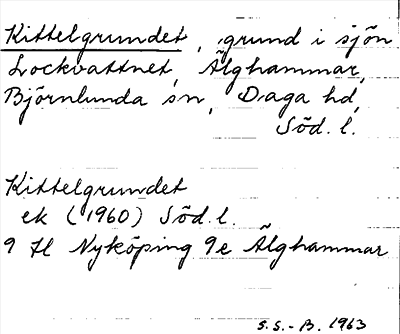 Kittelgrundet, grund i sjön
Lockvattnet, Älghammar,
Björnlunda sn, Daga hd,
Söd. l.
Kittelgrundet
ek (1960) Söd. l.
9 H Nyköping 9e Älghammar
S.S.-B. 1963